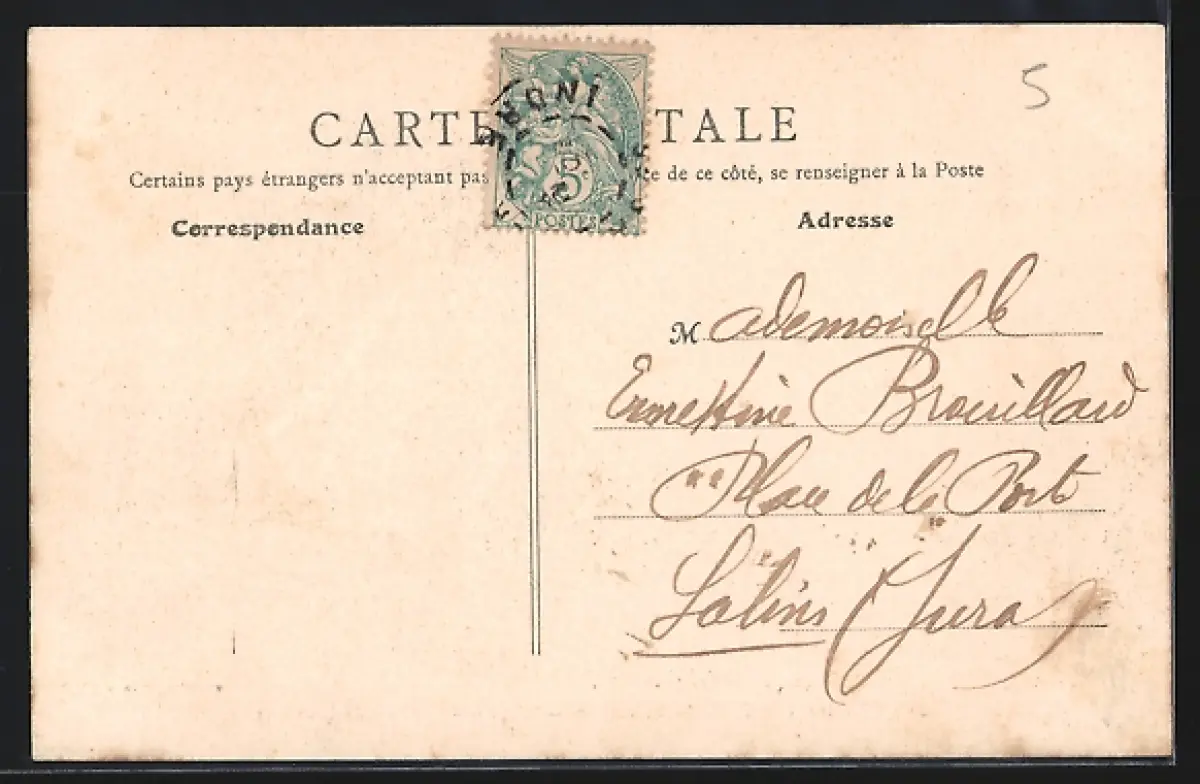 5
CARTE TALE
Certains pays étrangers n'acceptant pas de ce côté, se renseigner à la Poste
Correspondance
Adresse
INDRE
5
POSTES
Mademoiselle
Ernestine Brouillard
Place de la Porte
Salins (Jura)